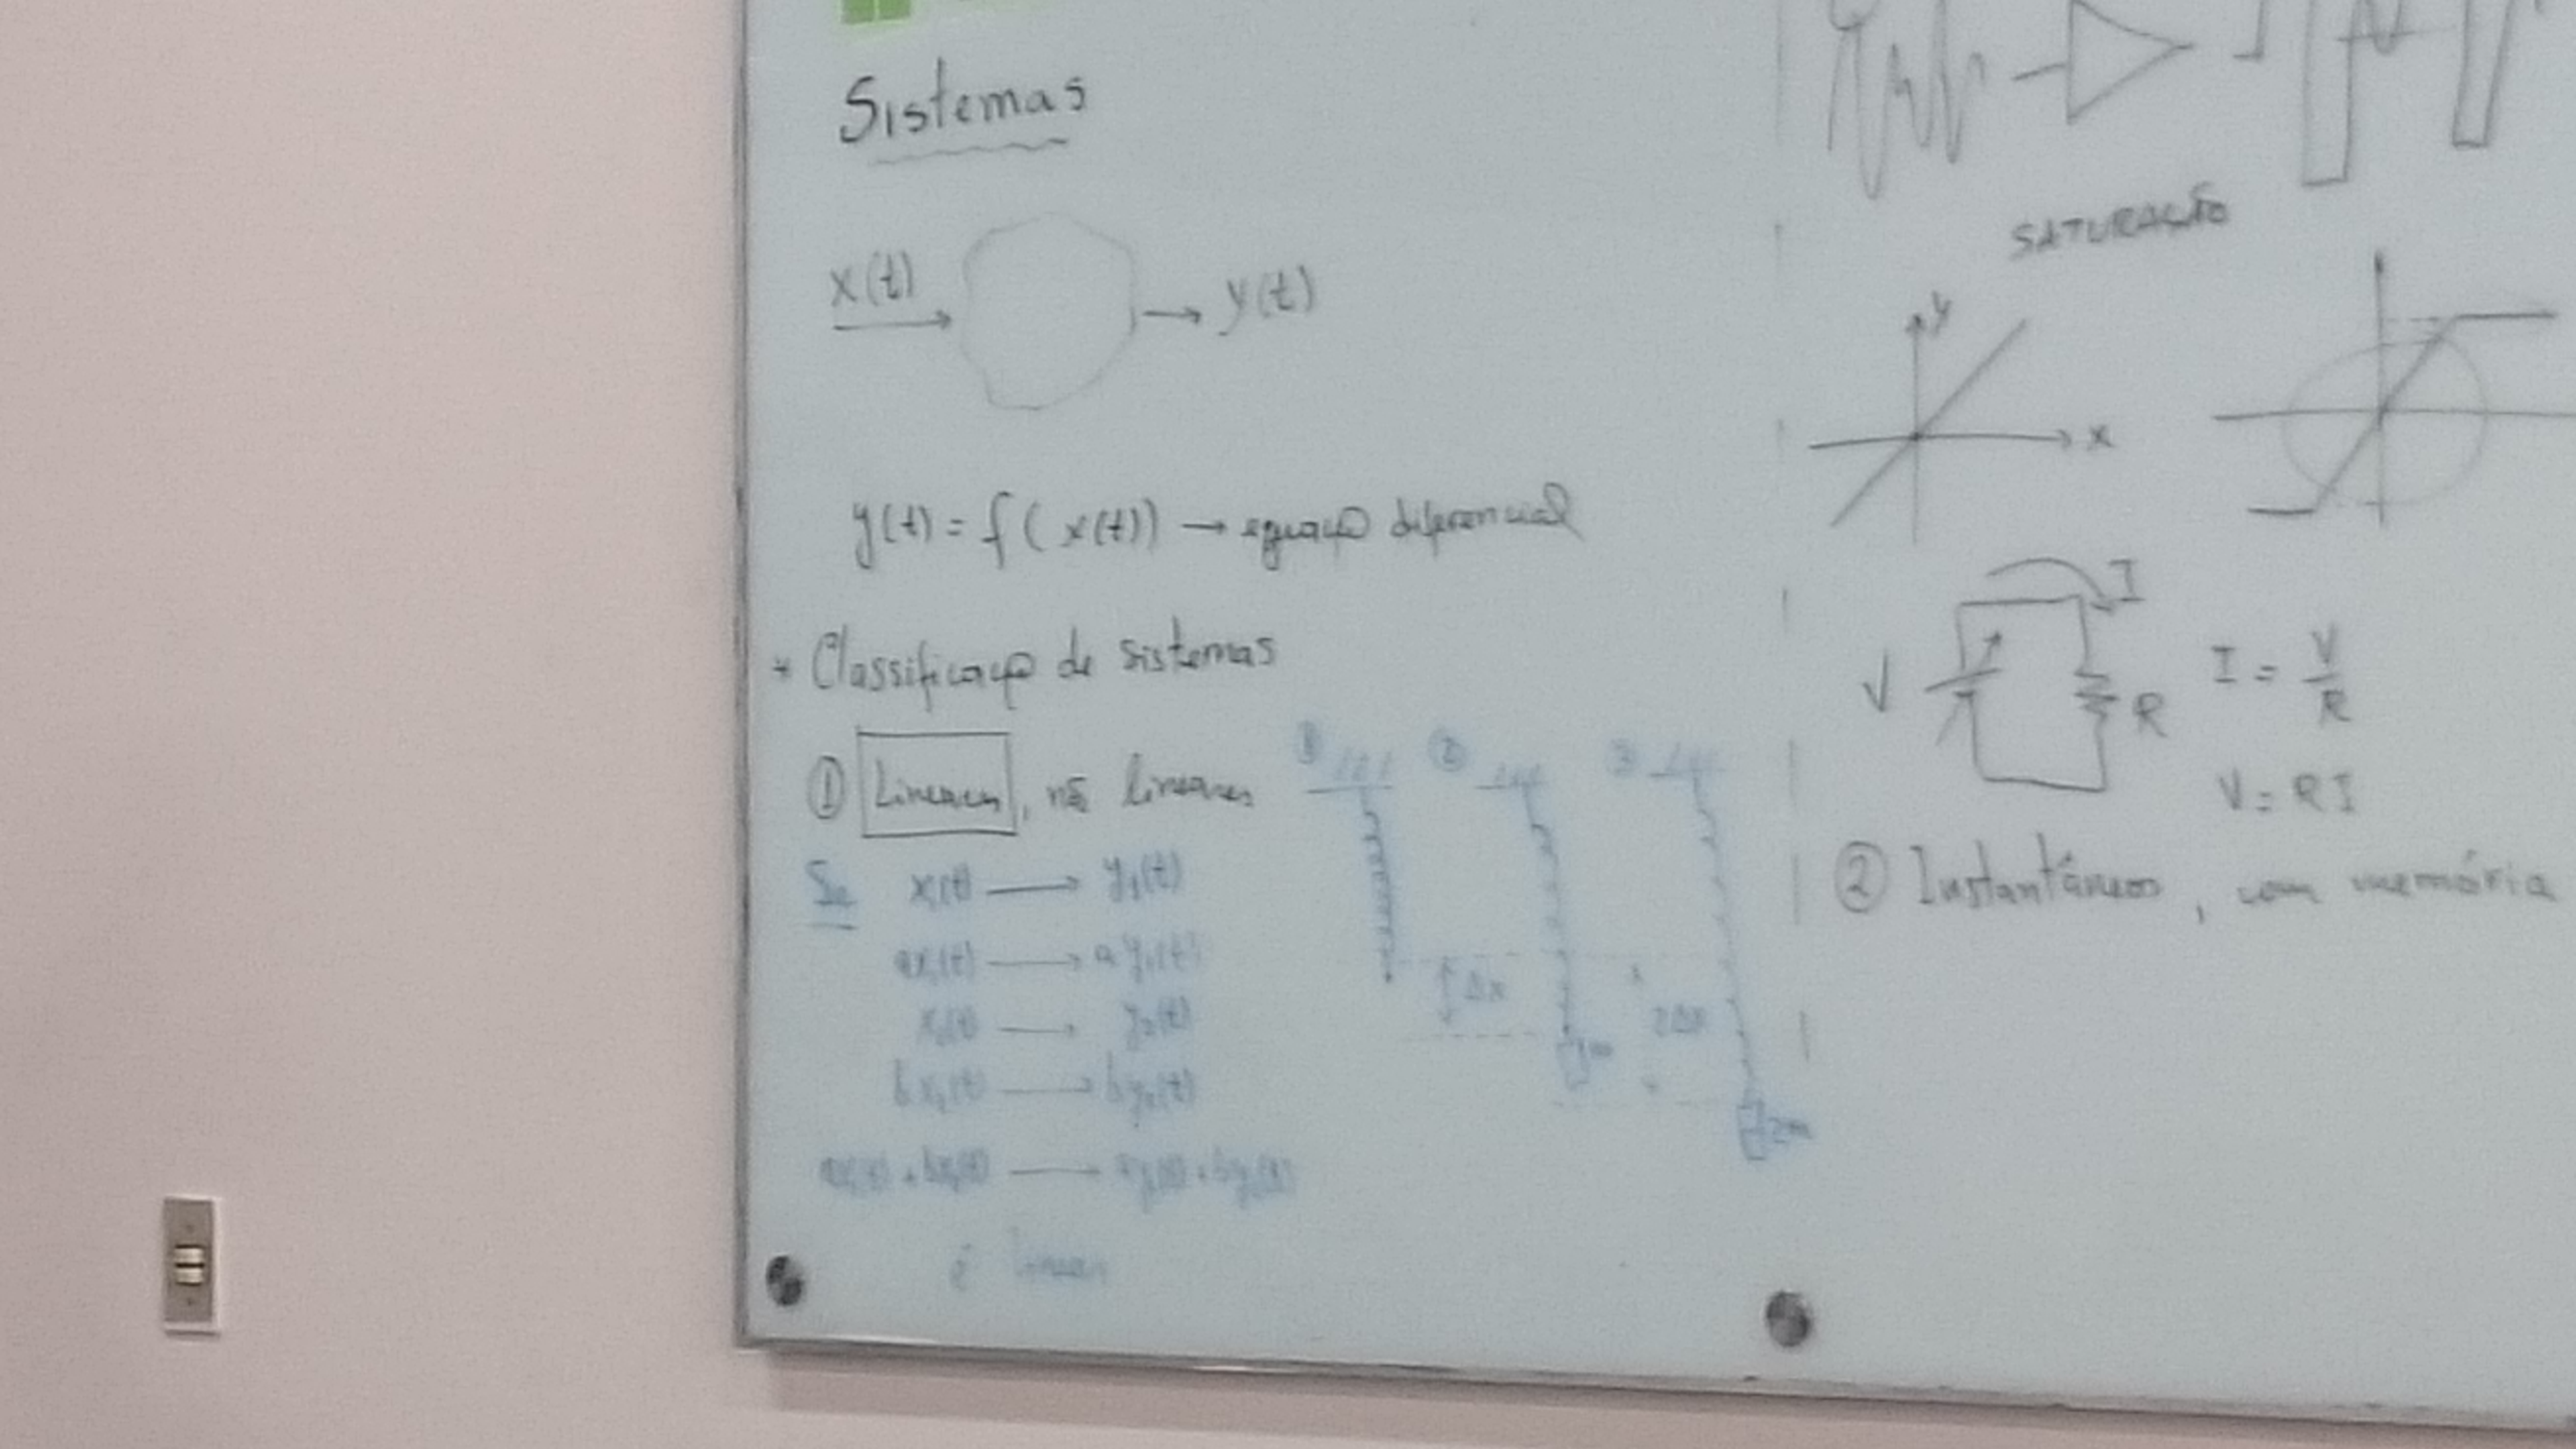 Sistemas
x(t)
y(t)
y(t) = f(x(t)) → equação diferencial
* Classificação de sistemas
① Lineares, não lineares
Se x₁(t) → y₁(t)
ax₁(t) → a y₁(t)
x₂(t) → y₂(t)
bx₂(t) → by₂(t)
ax₁(t) + bx₂(t) → ay₁(t) + by₂(t)
é linear
① ② ③
Δx
m
2Δx
2m
SATURAÇÃO
y
x
I
V
R
I = V/R
V = RI
② Instantâneos, com memória